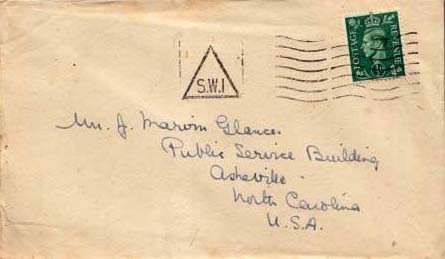 POSTAGE REVENUE
S.W.1
Mr. J. Marvin Glance
Public Service Building
Asheville
North Carolina
U.S.A.